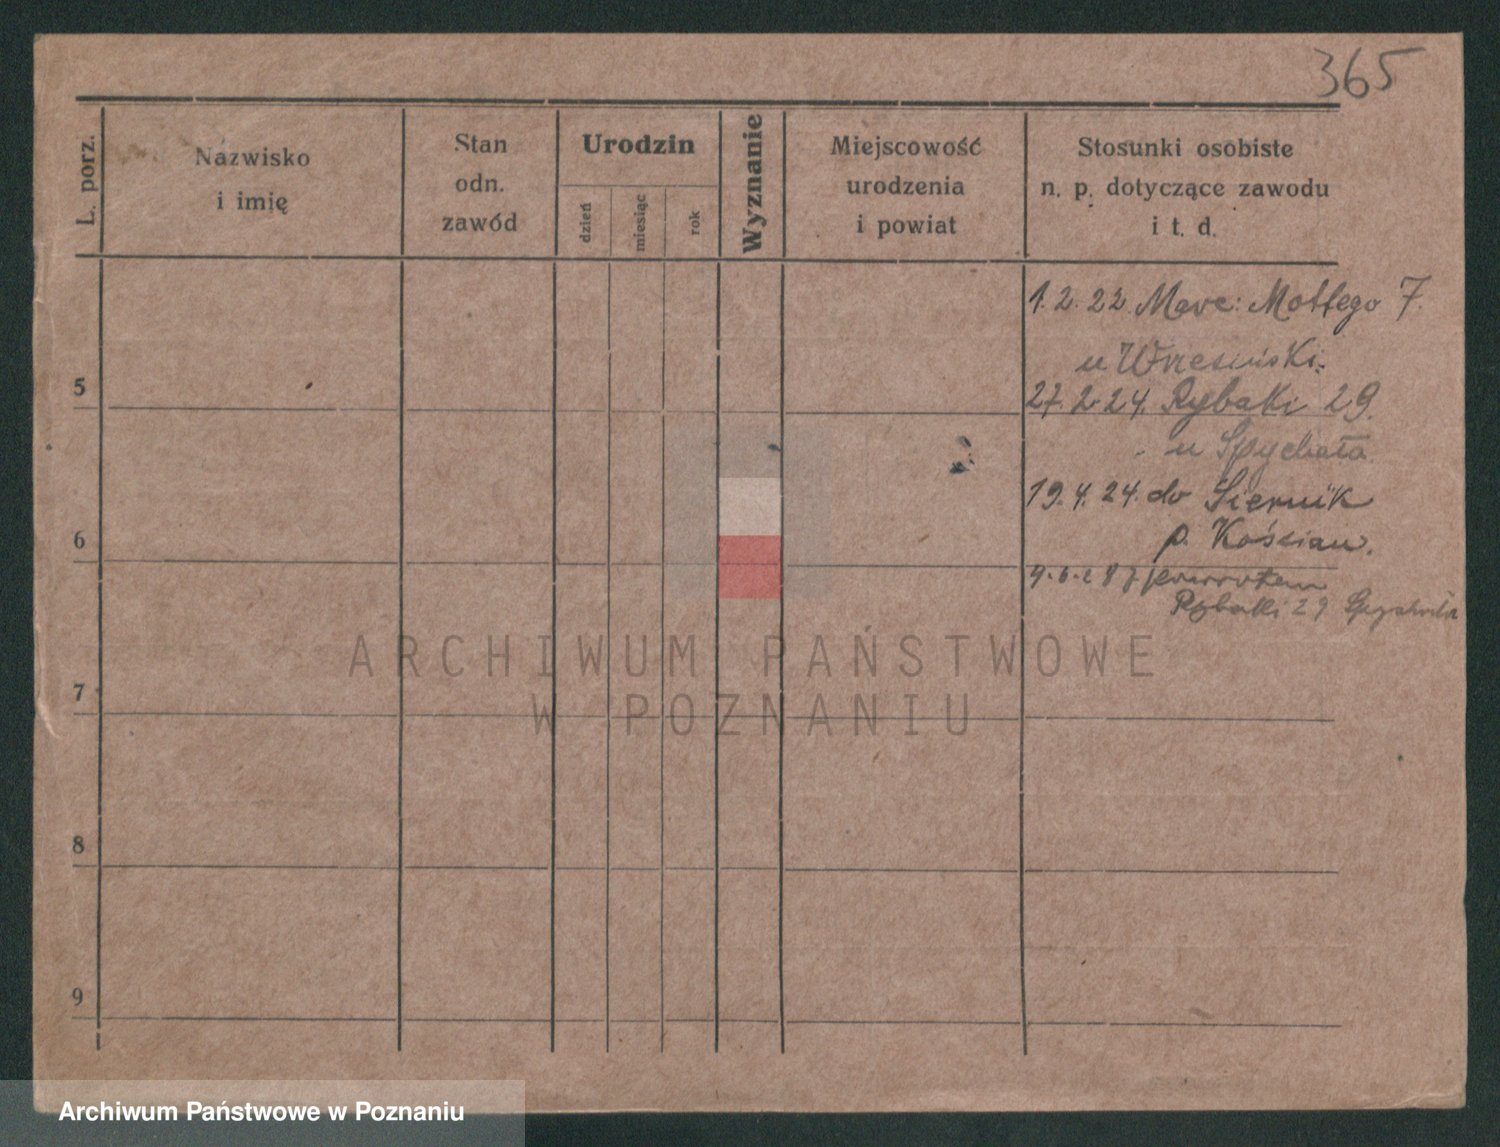 365
L. porz.
Nazwisko
i imię
Stan
odn.
zawód
Urodzin
dzień
miesiąc
rok
Wyznanie
Miejscowość
urodzenia
i powiat
Stosunki osobiste
n. p. dotyczące zawodu
i t. d.
1.2.22 Marc: Mottego 7.
u Wresinski.
5
27.2.24. Rybaki 29.
u Spychała
19.4.24. do Siernik
6
p. Kościan.
powrotem
Rybaki 29 Spychała
ARCHIWUM PAŃSTWOWE
7
W POZNANIU
8
9
Archiwum Państwowe w Poznaniu